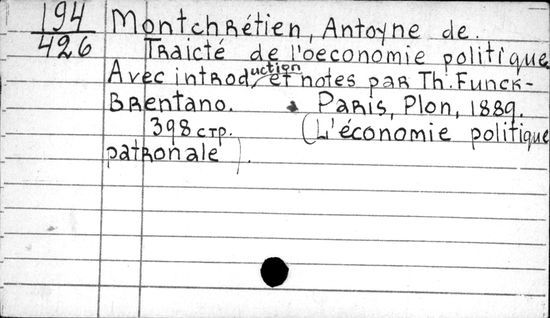 194
426
Montchrétien, Antoyne de.
Traicté de l'oeconomie politique
Avec introduction et notes par Th. Funck-
Brentano. Paris, Plon, 1889.
398 стр. (L'économie politique
patronale).